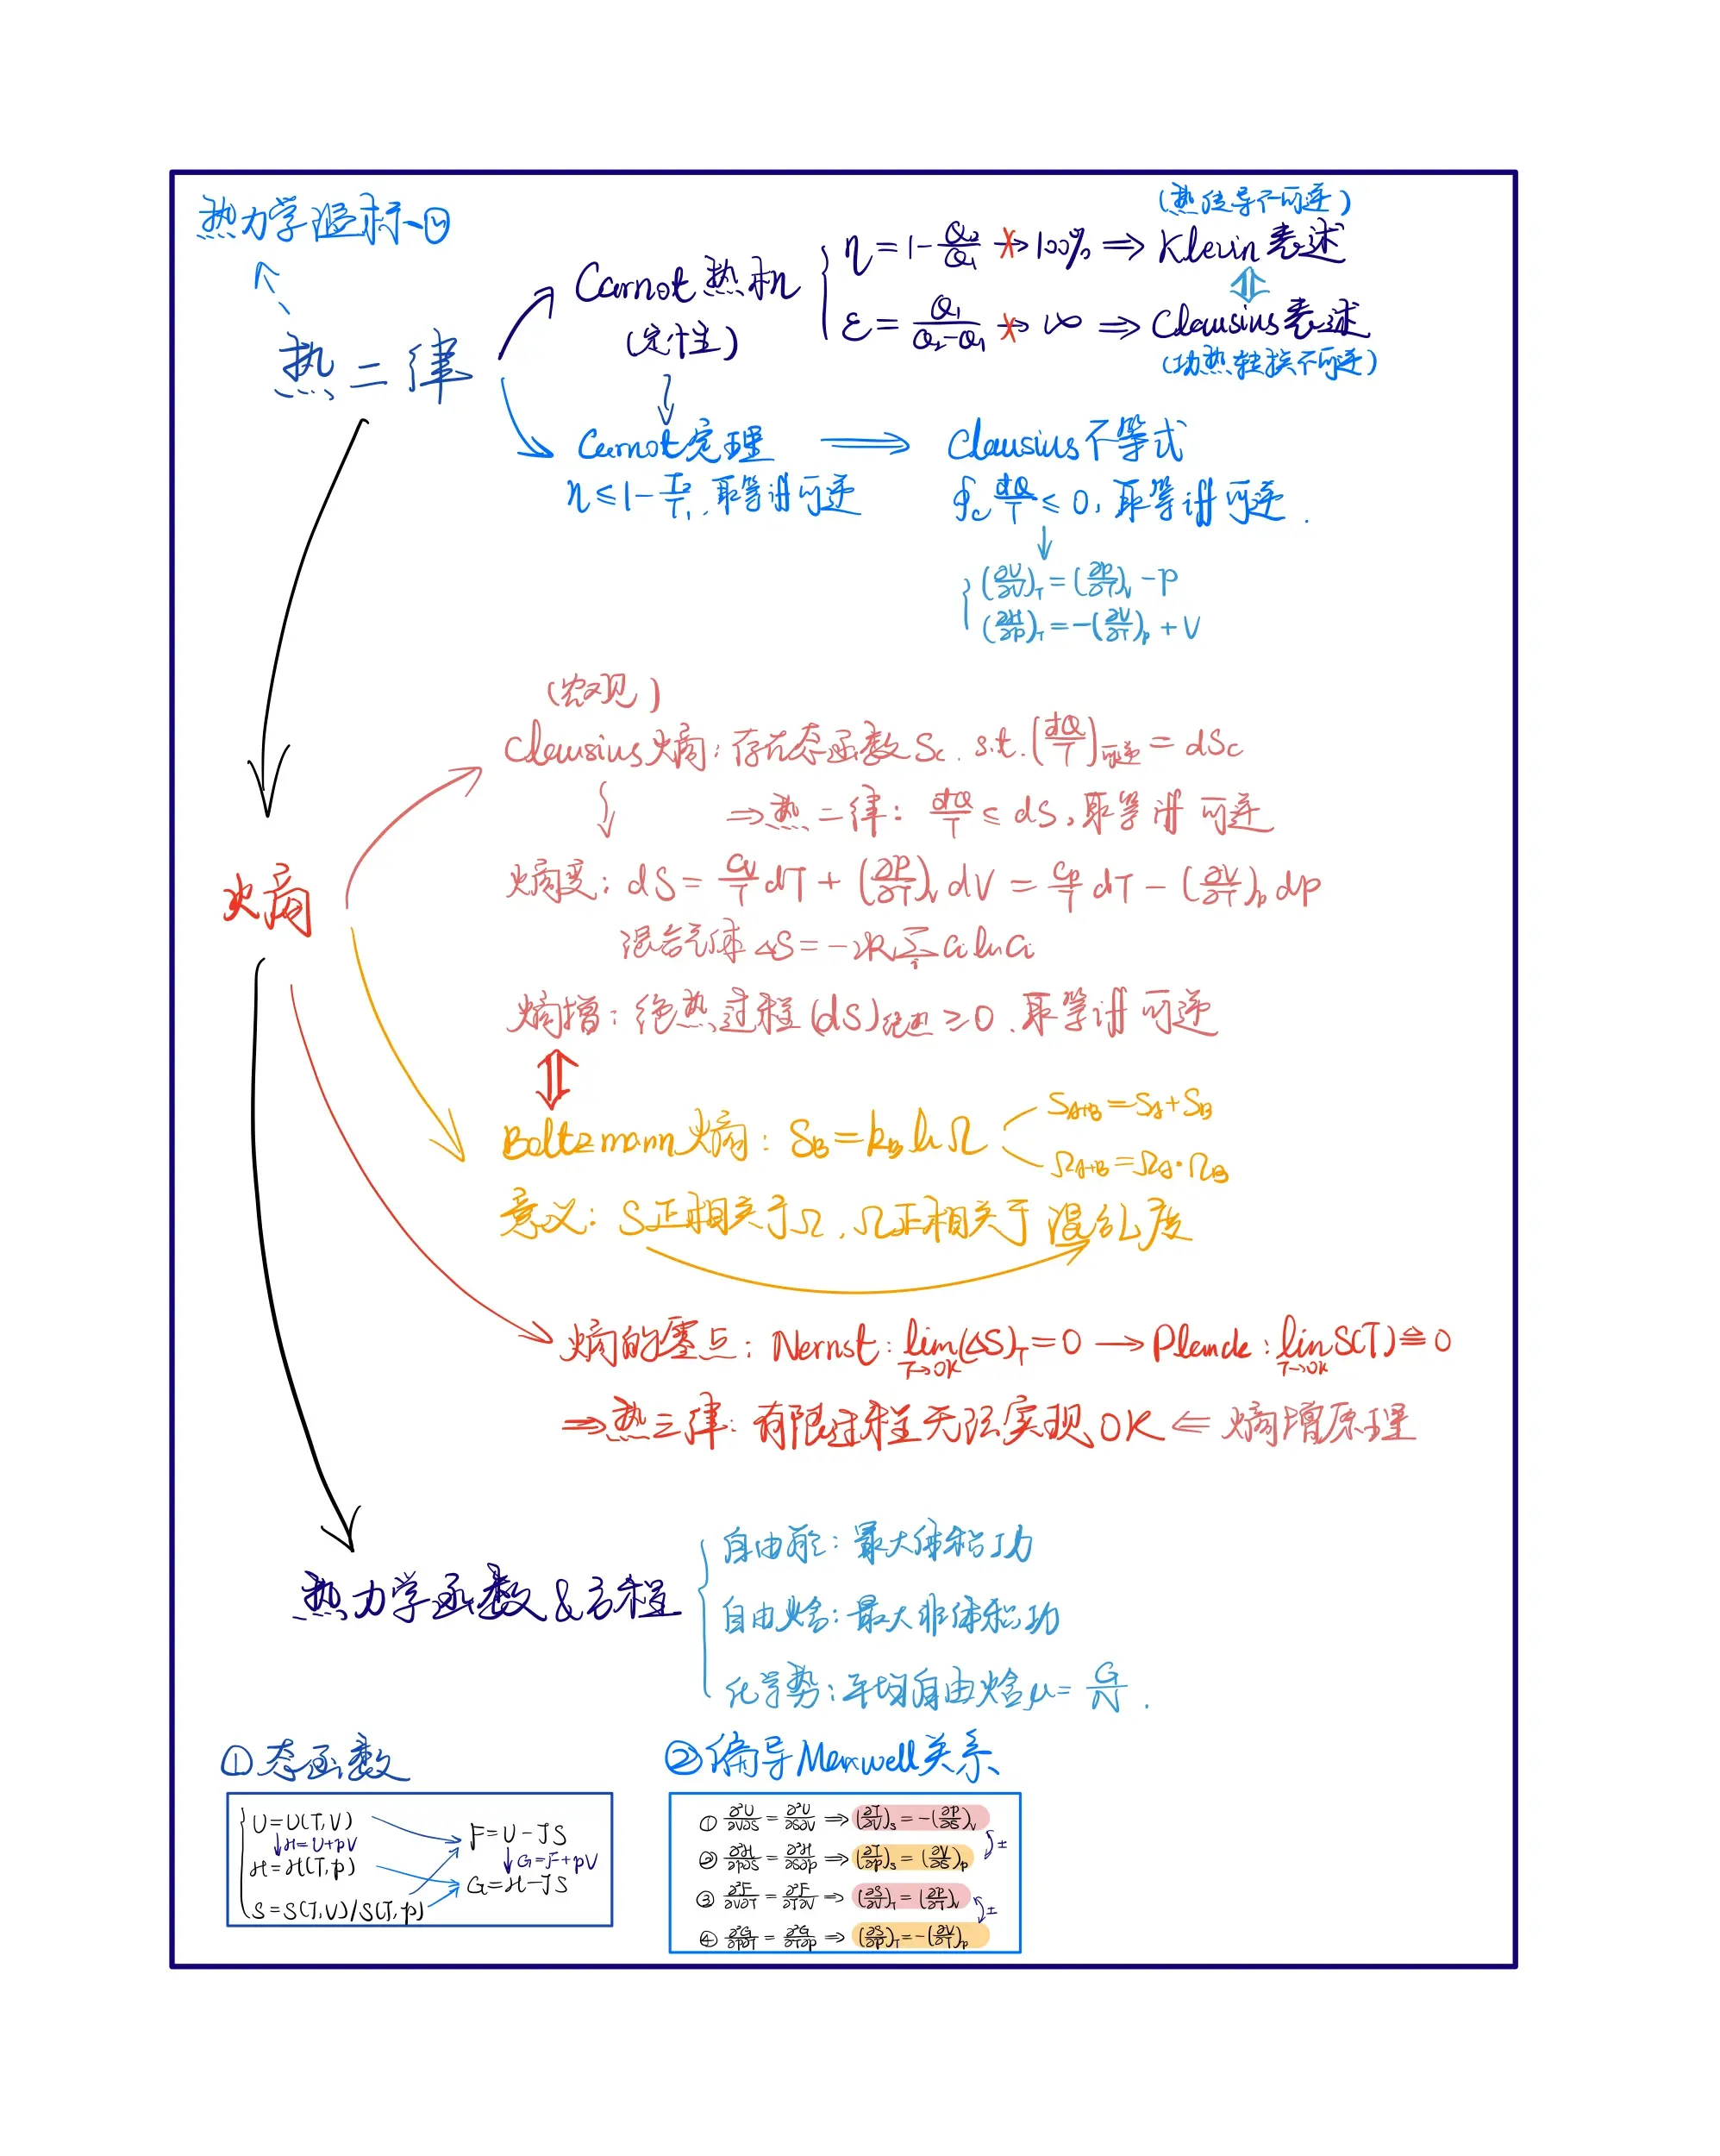 热力学温标-Θ
(热传导不可逆)
Carnot热机 { η = 1 - Q₂/Q₁ ↛ 100% ⇒ Klevin表述
(定性) ε = Q₁/(Q₂-Q₁) ↛ ∞ ⇒ Clausius表述
(功热转换不可逆)
热二律
Carnot定理 ⟹ Clausius不等式
η ≤ 1 - T₂/T₁, 取等讲可逆
∮c đQ/T ≤ 0, 取等讲可逆.
(∂U/∂V)_T = (∂p/∂T)_V - p
(∂H/∂p)_T = -(∂V/∂T)_p + V
(宏观)
Clausius熵: 存在态函数Sc. s.t. (đQ/T)可逆 = dSc
⇒ 热二律: đQ/T ≤ dS, 取等讲可逆
熵
熵变: dS = C_V/T dT + (∂P/∂T)_V dV = C_p/T dT - (∂V/∂T)_p dp
混合气体 ΔS = -νR∑ᵢ Cᵢ ln Cᵢ
熵增: 绝热过程 (dS)绝热 ≥ 0. 取等讲可逆
Boltzmann熵: S_B = k_B ln Ω
S_{A+B} = S_A + S_B
Ω_{A+B} = Ω_A · Ω_B
意义: S正相关于Ω, Ω正相关于混乱度
熵的零点: Nernst: lim_{T→0K} (ΔS)_T = 0 → Planck: lim_{T→0K} S(T) ≙ 0
⇒ 热三律: 有限过程无法实现0K ⇐ 熵增原理
热力学函数&方程
自由能: 最大体积功
自由焓: 最大非体积功
化学势: 平均自由焓 μ = G/N.
①态函数
U = U(T,V)
↓H = U+pV
H = H(T,p)
S = S(T,V)/S(T,p)
F = U - TS
↓G = F+pV
G = H - TS
②偏导Maxwell关系
① ∂²U/∂V∂S = ∂²U/∂S∂V ⇒ (∂T/∂V)_S = -(∂P/∂S)_V
±
② ∂²H/∂p∂S = ∂²H/∂S∂p ⇒ (∂T/∂p)_S = (∂V/∂S)_p
③ ∂²F/∂V∂T = ∂²F/∂T∂V ⇒ (∂S/∂V)_T = (∂P/∂T)_V
±
④ ∂²G/∂p∂T = ∂²G/∂T∂p ⇒ (∂S/∂p)_T = -(∂V/∂T)_p